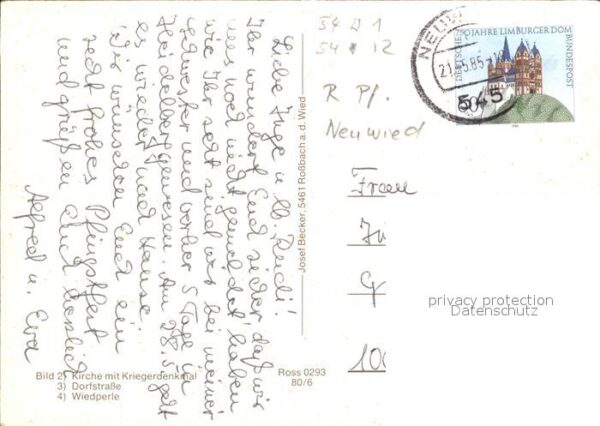 Liebe Inge u. lb. Rudi!
Ihr wundert Euch sicher, daß wir
uns noch nicht gemeldet haben
wie Ihr seht sind wir bei meiner
Schwester und vorher 5 Tage in
Heidelberg gewesen. Am 28.5. geht
es wieder nach Hause.
Wir wünschen Euch ein
recht frohes Pfingstfest
und grüßen Euch herzlich
Alfred u. Eva
Bild 2) Kirche mit Kriegerdenkmal
3) Dorfstraße
4) Wiedperle
Josef Becker, 5461 Roßbach a. d. Wied
Ross 0293
80/6
54 1
54 12
R Pf.
Neuwied
NEUWI
21.5.85
545
750 JAHRE LIMBURGER DOM
DEUTSCHE BUNDESPOST
Frau
privacy protection
Datenschutz
100